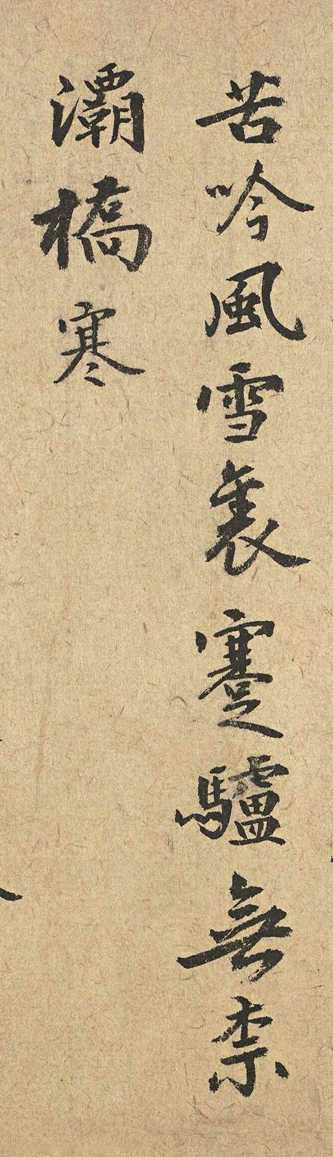 苦吟風雪裏蹇驢無柰
灞橋寒